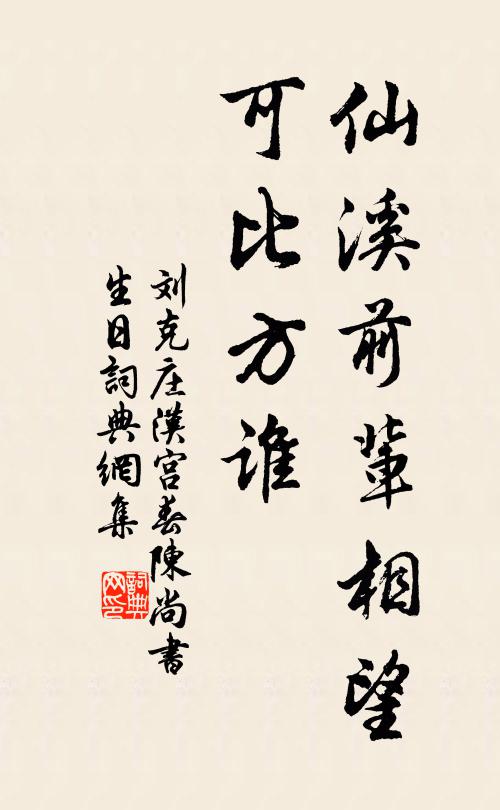 仙溪前輩相望
可比方誰
刘克庄漢宮春陳尚書
生日詞典網集
詞典网印